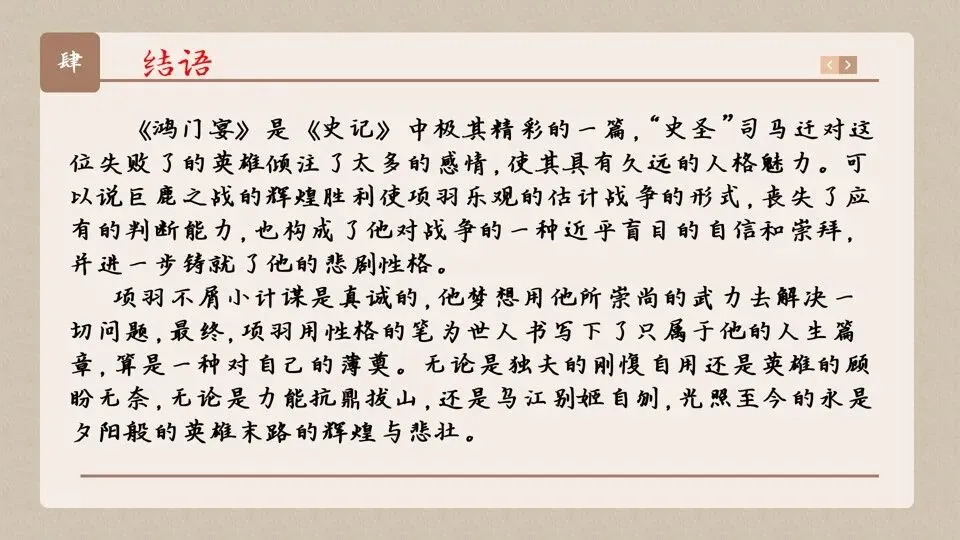 肆
结语
《鸿门宴》是《史记》中极其精彩的一篇,“史圣”司马迁对这
位失败了的英雄倾注了太多的感情,使其具有久远的人格魅力。可
以说巨鹿之战的辉煌胜利使项羽乐观的估计战争的形式,丧失了应
有的判断能力,也构成了他对战争的一种近乎盲目的自信和崇拜,
并进一步铸就了他的悲剧性格。
项羽不屑小计谋是真诚的,他梦想用他所崇尚的武力去解决一
切问题,最终,项羽用性格的笔为世人书写下了只属于他的人生篇
章,算是一种对自己的薄奠。无论是独夫的刚愎自用还是英雄的顾
盼无奈,无论是力能抗鼎拔山,还是乌江别姬自刎,光照至今的永是
夕阳般的英雄末路的辉煌与悲壮。